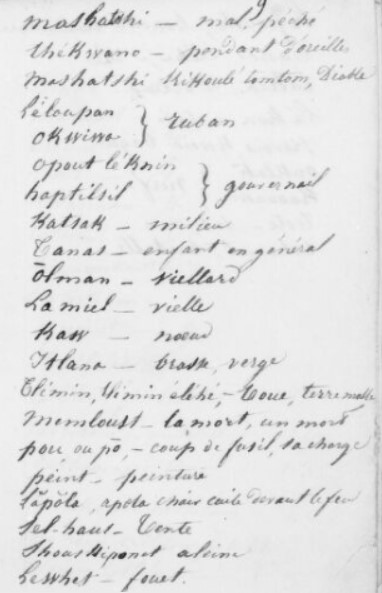 Mashatshi — mal, péché
thékwano — pendant d'oreilles
Mashatshi tomtom, Diable
Léloupan } ruban
Okwiwa
Opout léknin } gouvernail
haptilsil
Katsak — milieu
Tanas — enfant en général
Ōlman — viellard
Lamiel — vielle
Kaw — noeud
Itlana — brasse, verge
Tlémin, tlimin éléhé, — boue, terre molle
Memloust — la mort, un mort
pou, ou pō, — coup de fusil, sa charge
peint — peinture
Lăpŏla, apola chair cuite devant le feu
Sel-haus — Tente
aleine
Lewhet — fouet.